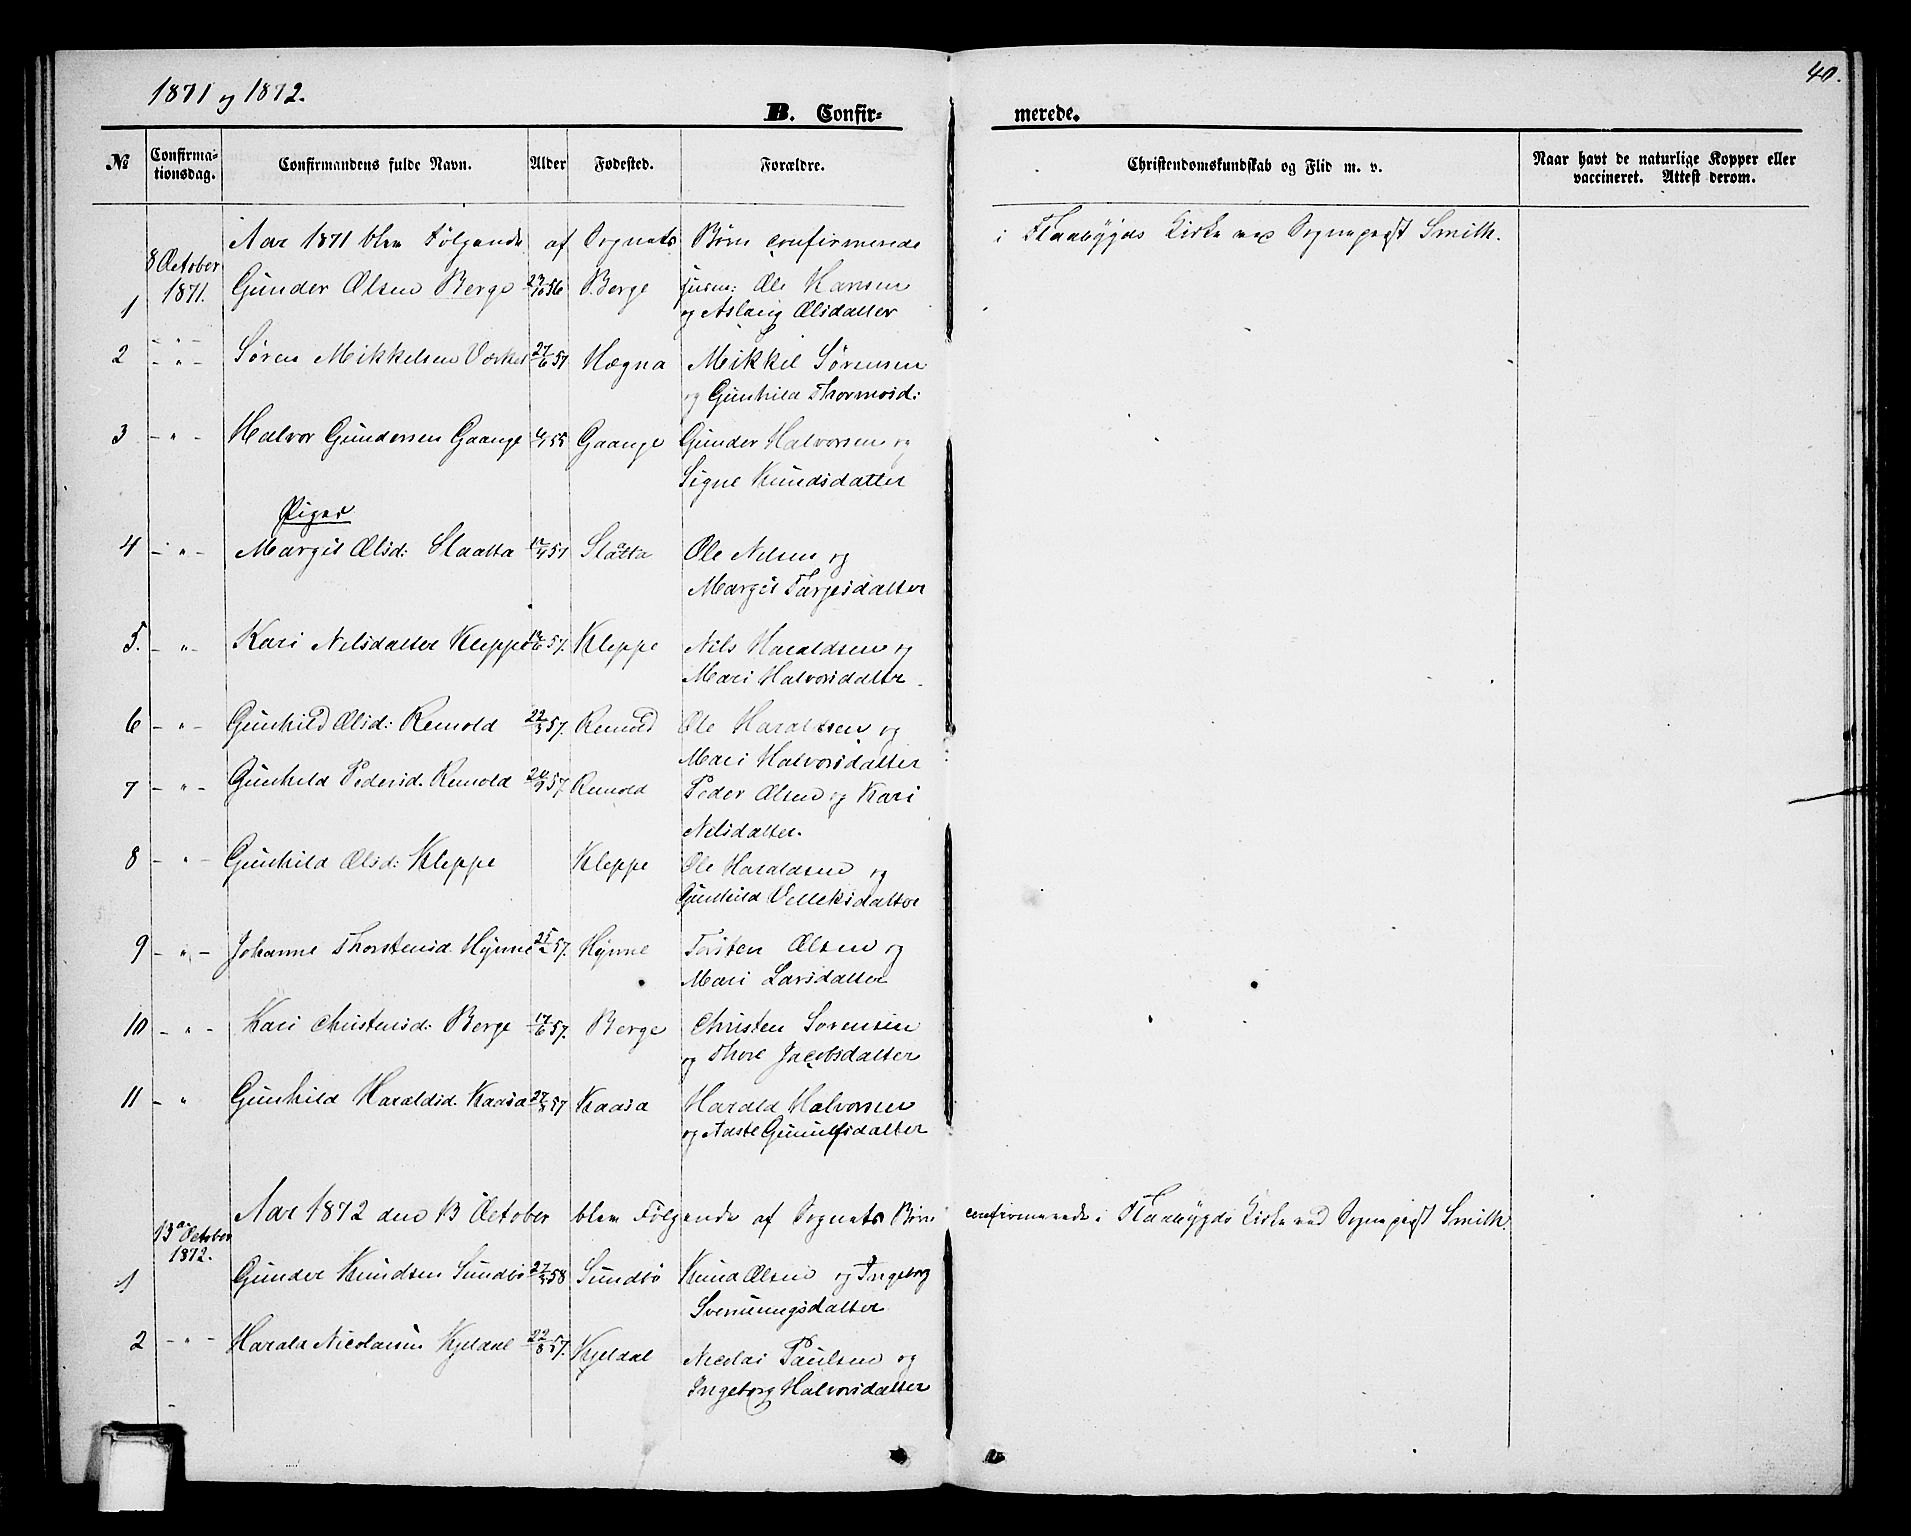 1871 og 1872.
40.
B. Confirmerede.
№ Confirmationsdag. Confirmandens fulde Navn. Alder Fødested. Forældre. Christendomskundskab og Flid m. v. Naar havt de naturlige Kopper eller vaccineret. Attest derom.
Aar 1871 blev Følgende af Sognets Børn confirmerede i Flaabygds Kirke ved Sognepræst Smith.
1 8 October 1871. Gunder Olsen Berge 56 Berge Ole Hansen
og Aslaug Olsdatter
2 - " - Søren Mikkelsen 27/6 57 Hægna Mikkel Sørensen
og Gunhild Thormosd:
3 - " - Halvor Gundersen Gaange 55 Gaange Gunder Halvorsen og
Signe Knudsdatter
Piger
4 - " - Margit Olsd: Slaatta 57 Slåtta Ole Nilsen og
Margit Targesdatter
5. - " - Kari Nilsdatter Kleppe 57. Kleppe Nils Haraldsen og
Mari Halvorsdatter
6 - " - Gunhild Olsd: Remold 22/3 57. Remold Ole Haraldsen og
Mari Halvorsdatter
7 - " - Gunhild Pedersd. Remold 57. Remold Peder Olsen og Kari
Nilsdatter.
8 - " - Gunhild Olsd: Kleppe Kleppe Ole Haraldsen og
Gunhild
9 - " - Johanne Thorstensd. Hynne 25/2 57. Hynne Torsten Olsen og
Mari Larsdatter
10 - " - Kari Christensd: Berge 17/6 57. Berge Christen Sorensen
og Thore Jacobsdatter
11 - " Gunhild Haraldsd. Kaasa 57 Kaasa Harald Halvorsen
og Aaste Gunulfsdatter
Aar 1872 den 13 October blev Følgende af Sognets Børn confirmerede i Flaabygds Kirke ved Sognepræst Smith.
13de October 1872.
1 Gunder Knudsen Sundbö 58 Sundbö Knud Olsen og Ingeborg
Svenungsdatter
2 - " - Harald Nicolaisen Kjeldal 22/8 57. Kjeldal Nicolai Paulsen og
Ingeborg Halvorsdatter